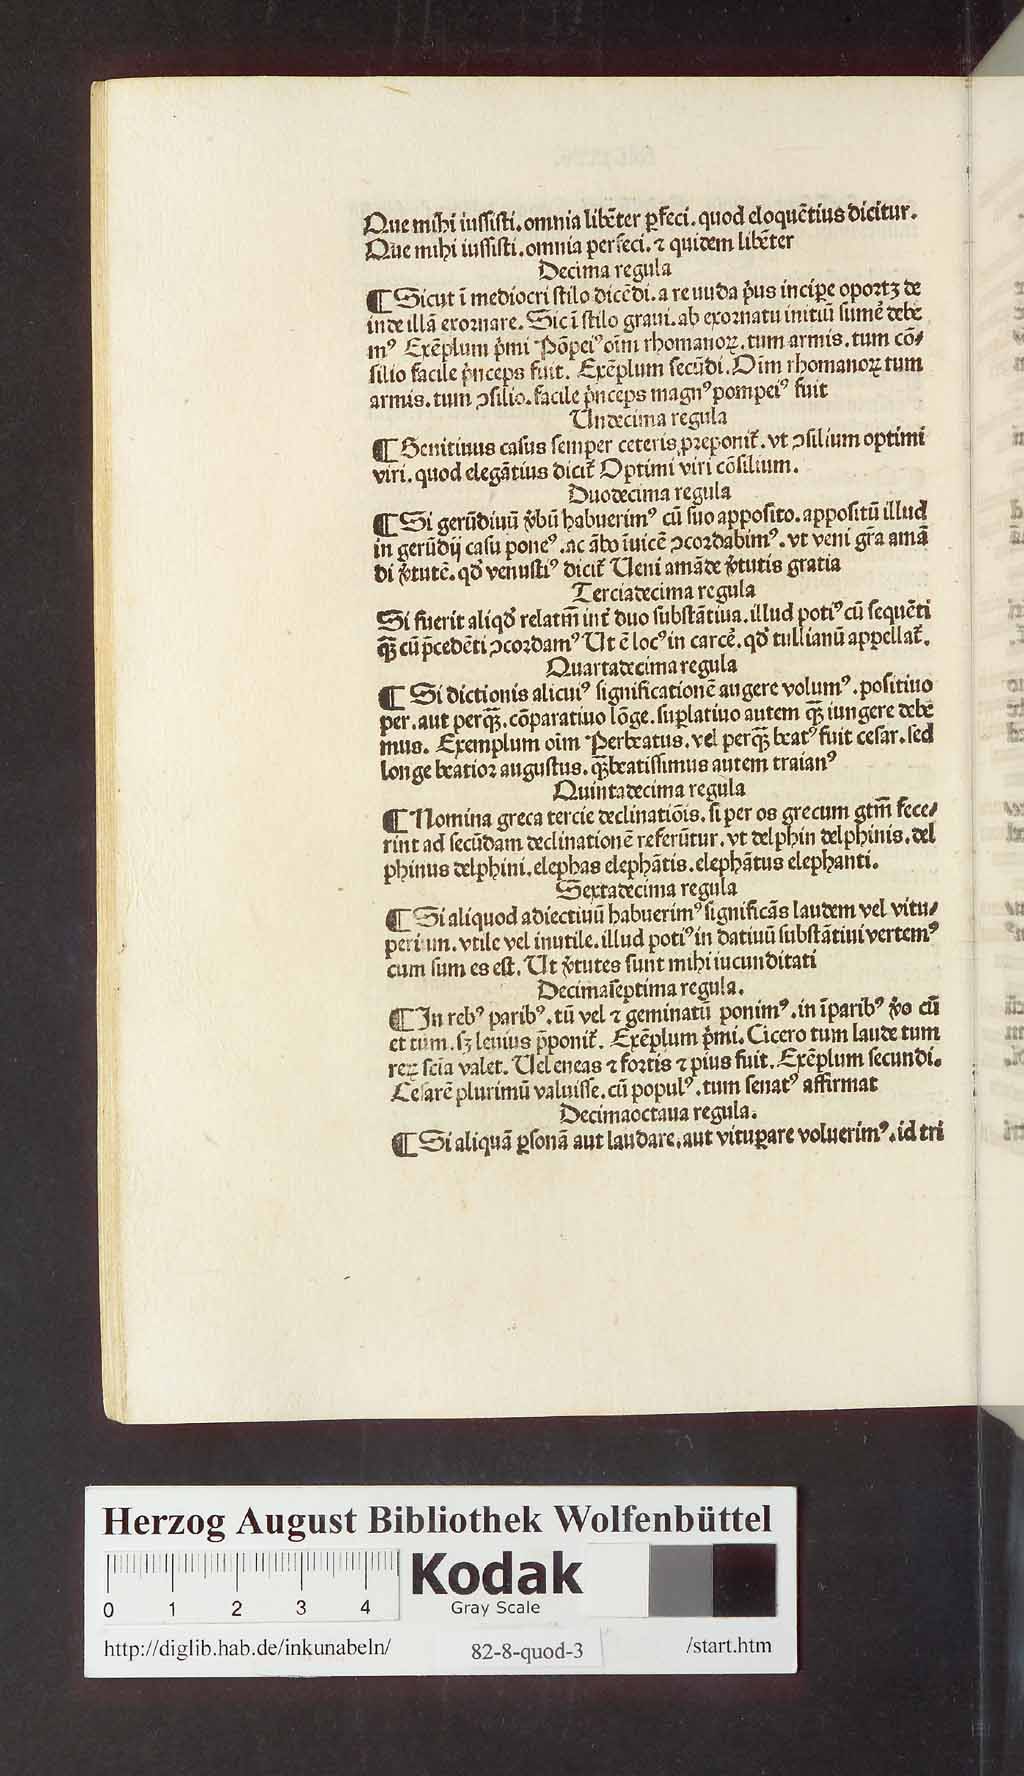 Que mihi iussisti. omnia libēter ꝑfeci. quod eloquētius dicitur.
Que mihi iussisti. omnia perfeci. ⁊ quidem libēter
Decima regula
¶ Sicut ī mediocri stilo dicēdi. a re nuda p̄us incipe oportꝫ de
inde illā exornare. Sic ī stilo graui. ab exornatu initiū sumē debe
mꝰ Exēplum p̄mi Pōpeiꝰ oīm rhomanoꝝ. tum armis. tum cō⸗
silio facile p̄nceps fuit. Exēplum secūdi. Oīm rhomanoꝝ tum
armis. tum ꝯsilio. facile p̄nceps magnꝰ pompeiꝰ fuit
Undecima regula
¶ Genitiuus casus semper ceteris preponit̄. vt ꝯsilium optimi
viri. quod elegātius dicit̄ Optimi viri cōsilium.
Duodecima regula
¶ Si gerūdiuū v̄bū habuerimꝰ cū suo apposito. appositū illud
in gerūdij casu poneꝰ. ac ābo īuicē ꝯcordabimꝰ. vt veni gr̄a amā
di v̄tutē. qd̄ venustiꝰ dicit̄ Ueni amāde v̄tutis gratia
Terciadecima regula
Si fuerit aliqd̄ relatm̄ int̄ duo substātiua. illud potiꝰ cū sequēti
q̄ꝫ cū p̄cedēti ꝯcordamꝰ Ut ē locꝰ in carcē. qd̄ tullianū appellat̄.
Quartadecima regula
¶ Si dictionis alicuiꝰ significationē augere volumꝰ. positiuo
per. aut perq̄ꝫ. cōparatiuo lōge. suꝑlatiuo autem q̄ꝫ iungere debe
mus. Exemplum oīm Perbeatus. vel perq̄ꝫ beatꝰ fuit cesar. sed
longe beatior augustus. q̄ꝫbeatissimus autem traianꝰ
Quintadecima regula
¶ Nomina greca tercie declinatiōis. si per os grecum gtm̄ fece⸗
rint ad secūdam declinationē referūtur. vt delphin delphinis. del
phinus delphini. elephas elephātis. elephātus elephanti.
Sextadecima regula
¶ Si aliquod adiectiuū habuerimꝰ significās laudem vel vitu⸗
perium. vtile vel inutile. illud potiꝰ in datiuū substātiui vertemꝰ
cum sum es est. Ut v̄tutes sunt mihi iucunditati
Decimaseptima regula.
¶ In rebꝰ paribꝰ. tū vel ⁊ geminatū ponimꝰ. in īparibꝰ v̄o cū
et tum. sꝫ leuius p̄ponit̄. Exēplum p̄mi. Cicero tum laude tum
rez scīa valet. Uel eneas ⁊ fortis ⁊ pius fuit. Exēplum secundi.
Cesarē plurimū valuisse. cū populꝰ. tum senatꝰ affirmat
Decimaoctaua regula.
¶ Si aliquā ꝑsonā aut laudare. aut vituꝑare voluerimꝰ. id tri
Herzog August Bibliothek Wolfenbüttel
0 1 2 3 4
Kodak
Gray Scale
http://diglib.hab.de/inkunabeln/ 82-8-quod-3 /start.htm